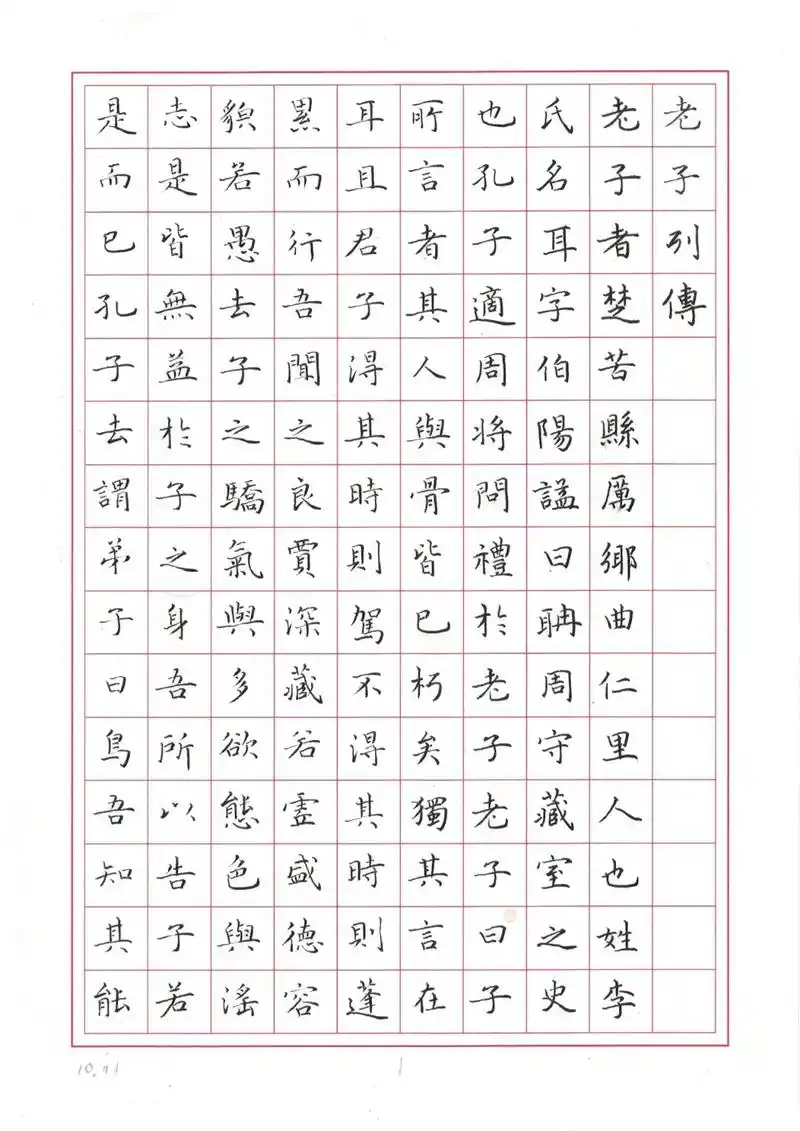 老子列傳
老子者楚苦縣厲鄉曲仁里人也姓李
氏名耳字伯陽謚曰聃周守藏室之史
也孔子適周將問禮於老子老子曰子
所言者其人與骨皆已朽矣獨其言在
耳且君子得其時則駕不得其時則蓬
累而行吾聞之良賈深藏若虛盛德容
貌若愚去子之驕氣與多欲態色與淫
志是皆無益於子之身吾所以告子若
是而已孔子去謂弟子曰鳥吾知其能
1